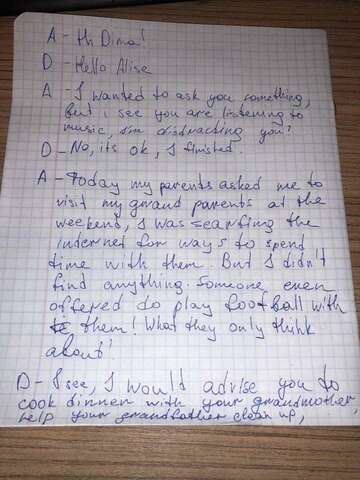 A - Hi Dima!
D - Hello Alise
A - I wanted to ask you something,
but i see you are listening to
music, i'm distracting you?
D - No, its ok, I finished.
A - Today my parents asked me to
visit my grand parents at the
weekend, I was searfing the
internet for ways to spend
time with them. But I didn't
find anything. Someone even
offered do play football with
them! What they only think
about!
D - I see, I would advise you to
cook dinner with your grandmother,
help your grandfather clean up,